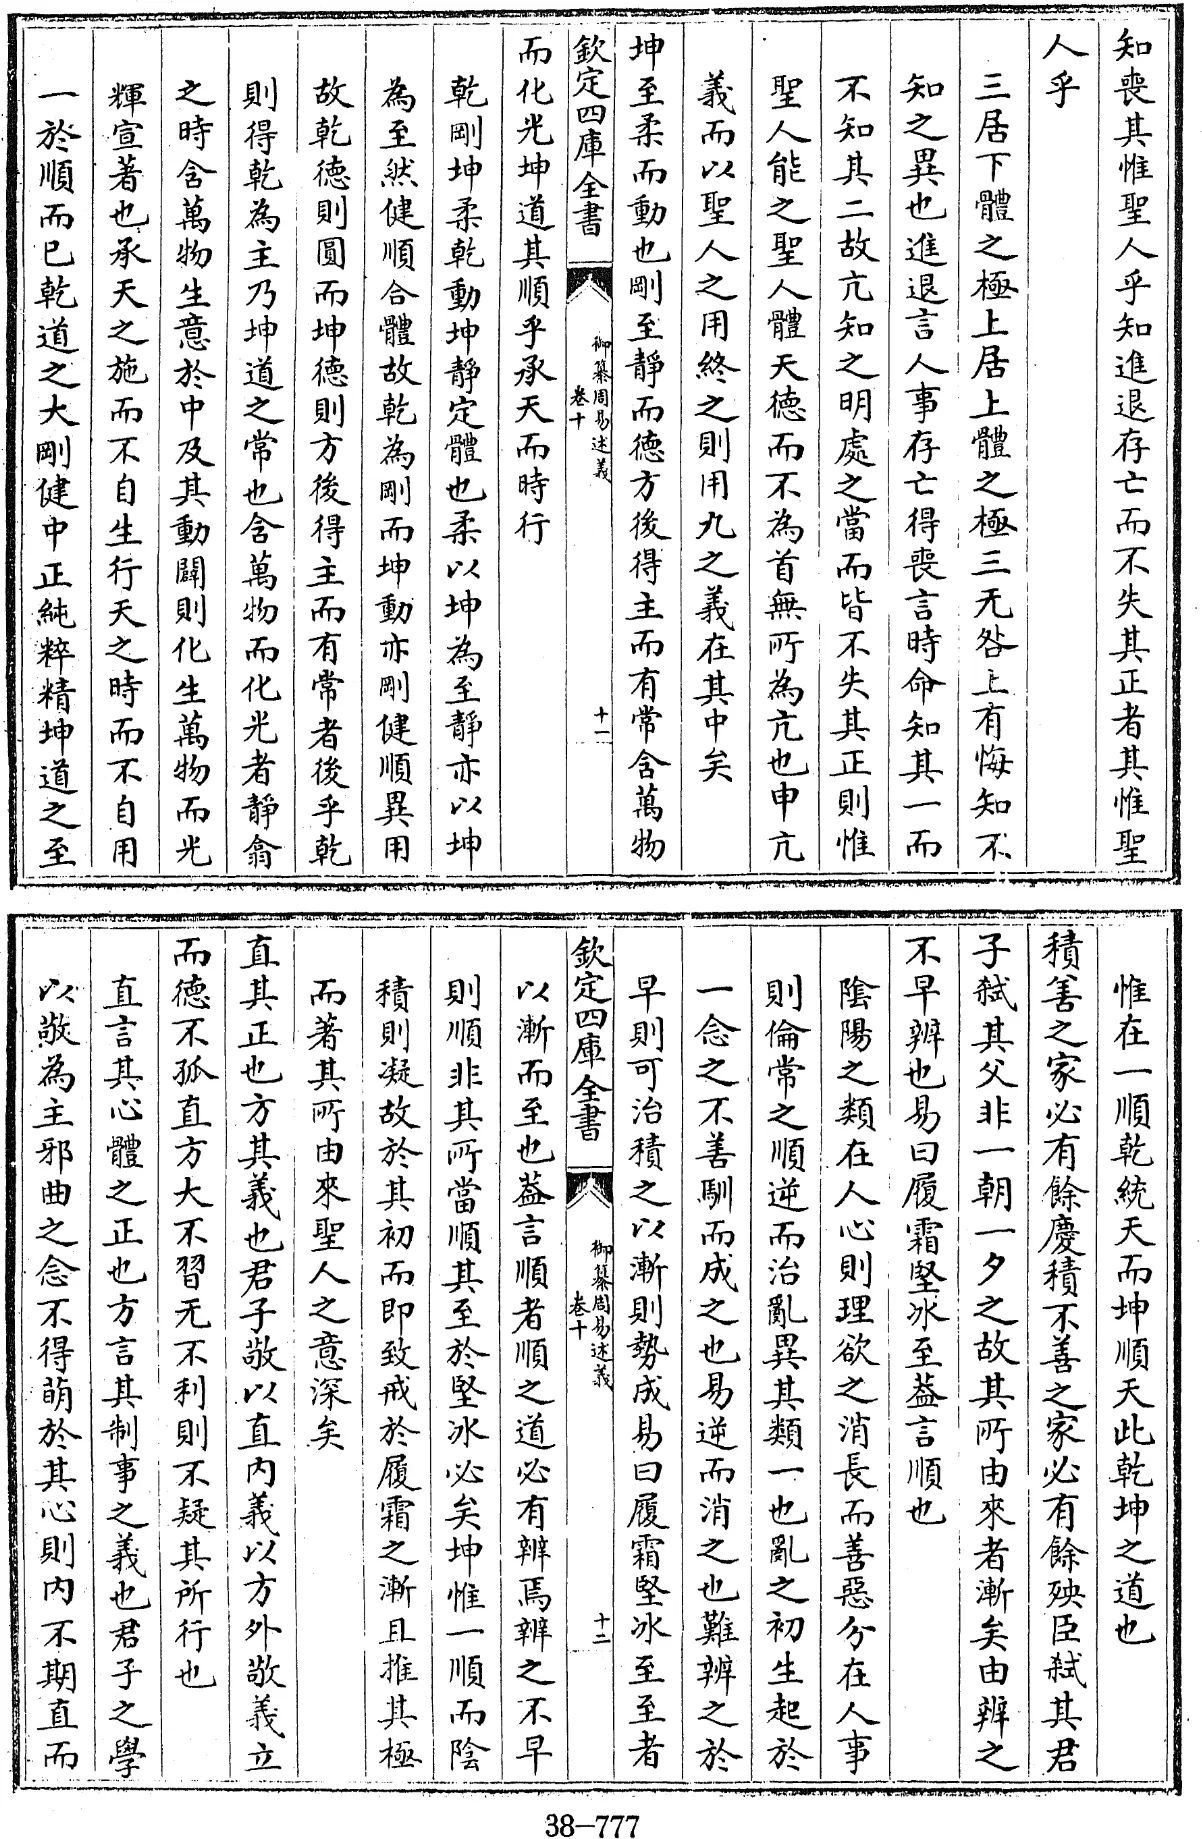 知喪其惟聖人乎知進退存亡而不失其正者其惟聖
人乎
三居下體之極上居上體之極三无咎上有悔知不
知之異也進退言人事存亡得喪言時命知其一而
不知其二故亢知之明處之當而皆不失其正則惟
聖人能之聖人體天德而不為首無所為亢也申亢
義而以聖人之用終之則用九之義在其中矣
坤至柔而動也剛至靜而德方後得主而有常含萬物
欽定四庫全書
御纂周易述義
卷十
十一
而化光坤道其順乎承天而時行
乾剛坤柔乾動坤靜定體也柔以坤為至靜亦以坤
為至然健順合體故乾為剛而坤動亦剛健順異用
故乾德則圓而坤德則方後得主而有常者後乎乾
則得乾為主乃坤道之常也含萬物而化光者靜翕
之時含萬物生意於中及其動闢則化生萬物而光
輝宣著也承天之施而不自生行天之時而不自用
一於順而已乾道之大剛健中正純粹精坤道之至
惟在一順乾統天而坤順天此乾坤之道也
積善之家必有餘慶積不善之家必有餘殃臣弒其君
子弒其父非一朝一夕之故其所由來者漸矣由辨之
不早辨也易曰履霜堅冰至葢言順也
陰陽之類在人心則理欲之消長而善惡分在人事
則倫常之順逆而治亂異其類一也亂之初生起於
一念之不善馴而成之也易逆而消之也難辨之於
早則可治積之以漸則勢成易曰履霜堅冰至至者
欽定四庫全書
御纂周易述義
卷十
十二
以漸而至也葢言順者順之道必有辨焉辨之不早
則順非其所當順其至於堅冰必矣坤惟一順而陰
積則凝故於其初而即致戒於履霜之漸且推其極
而著其所由來聖人之意深矣
直其正也方其義也君子敬以直內義以方外敬義立
而德不孤直方大不習无不利則不疑其所行也
直言其心體之正也方言其制事之義也君子之學
以敬為主邪曲之念不得萌於其心則内不期直而
38-777